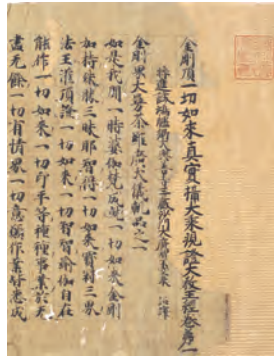 金剛頂一切如來真實攝大乘現證大教王經卷第一
金剛界大曼荼羅廣大儀軌品之一
如是我聞一時婆伽梵成就一切如來金剛
如持殊勝三昧耶智得一切如來寶冠三界
法王灌頂證一切如來一切智智瑜伽自在
能作一切如來一切印平等種種事業於無
盡無餘一切有情界一切意願作業皆悉成